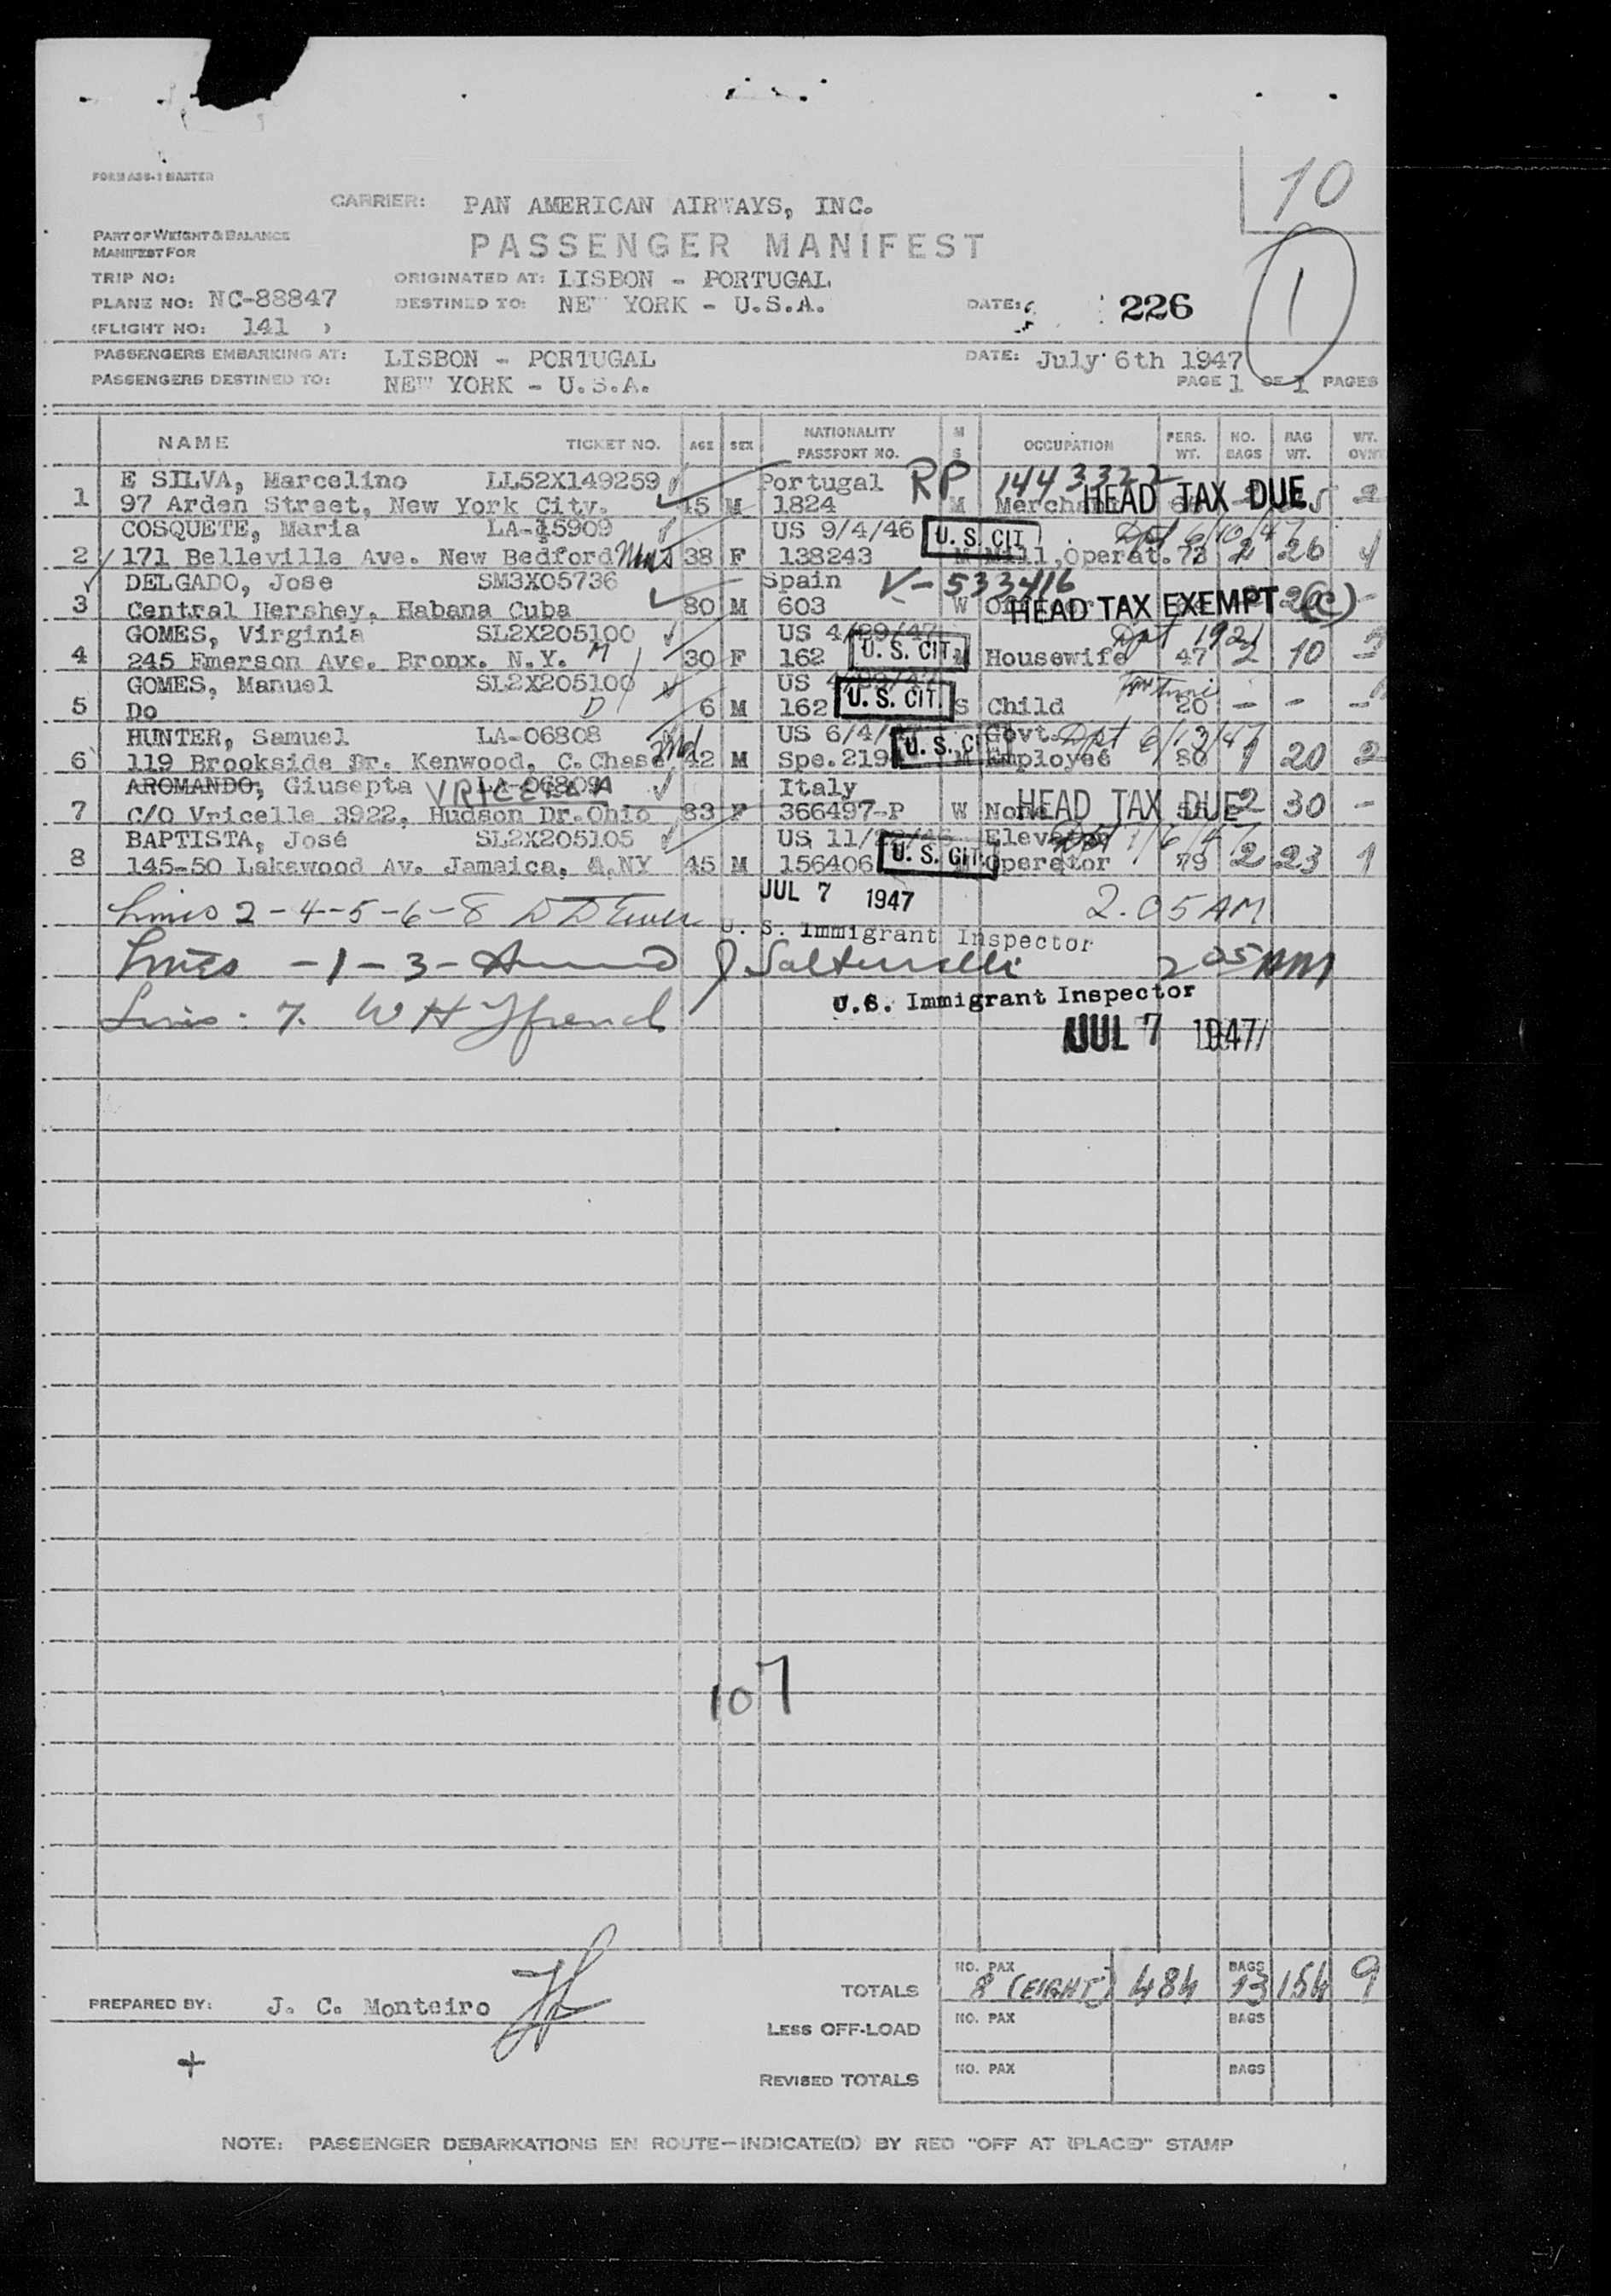 FORM ABS-1 MASTER
10
CARRIER: PAN AMERICAN AIRWAYS, INC.
PART OF WEIGHT & BALANCE
MANIFEST FOR
PASSENGER MANIFEST
1
TRIP NO:
ORIGINATED AT: LISBON - PORTUGAL
PLANE NO: NC-88847
DESTINED TO: NEW YORK - U.S.A.
DATE: 226
(FLIGHT NO: 141 )
PASSENGERS EMBARKING AT: LISBON - PORTUGAL
DATE: July 6th 1947
PASSENGERS DESTINED TO: NEW YORK - U.S.A.
PAGE 1 OF 1 PAGES
NAME TICKET NO. AGE SEX NATIONALITY PASSPORT NO. M S OCCUPATION PERS. WT. NO. BAGS BAG WT. WT. OVWT
E SILVA, Marcelino LL52X149259 Portugal RP 1443322
1 97 Arden Street, New York City. 45 M 1824 M Merchant HEAD TAX DUE
COSQUETE, Maria LA-15909 US 9/4/46 U. S. CIT Dpt 6/10/47
2 171 Belleville Ave. New Bedford Mass 38 F 138243 M Mill,Operat. 73 2 26 1
DELGADO, Jose SM3X05736 Spain V-533416
3 Central Hershey, Habana Cuba 80 M 603 W HEAD TAX EXEMPT (C) -
GOMES, Virginia SL2X205100 US 4/29/47 Dpt 1921
4 245 Emerson Ave. Bronx. N.Y. M 30 F 162 U. S. CIT. Housewife 47 2 10
GOMES, Manuel SL2X205100 US 4/29/47
5 Do D 6 M 162 U. S. CIT S Child 20 - - -
HUNTER, Samuel LA-06808 US 6/4/ Govt. Dpt 6/13/47
6 119 Brookside Dr. Kenwood, C.Chase Md 42 M Spe.219 U. S. CIT M Employee 80 1 20 2
AROMANDO, Giusepta VRICELLA LA-06809 Italy
7 C/O Vricelle 3922, Hudson Dr.Ohio 83 F 366497-P W None HEAD TAX DUE 2 30 -
BAPTISTA, José SL2X205105 US 11/22/46 Elevator Dpt 1/6/47
8 145-50 Lakewood Av. Jamaica, NY 45 M 156406 U. S. CIT. Operator 79 2 23 1
JUL 7 1947
Lines 2-4-5-6-8 2.05 AM
U. S. Immigrant Inspector
Lines -1-3- 2 05 AM
U.S. Immigrant Inspector
Lines: 7. W H French
JUL 7 1947
107
PREPARED BY: J. C. Monteiro
TOTALS NO. PAX 8 (EIGHT) 484 BAGS 13 154 9
LESS OFF-LOAD NO. PAX BAGS
REVISED TOTALS NO. PAX BAGS
NOTE: PASSENGER DEBARKATIONS EN ROUTE—INDICATE(D) BY RED "OFF AT (PLACE)" STAMP